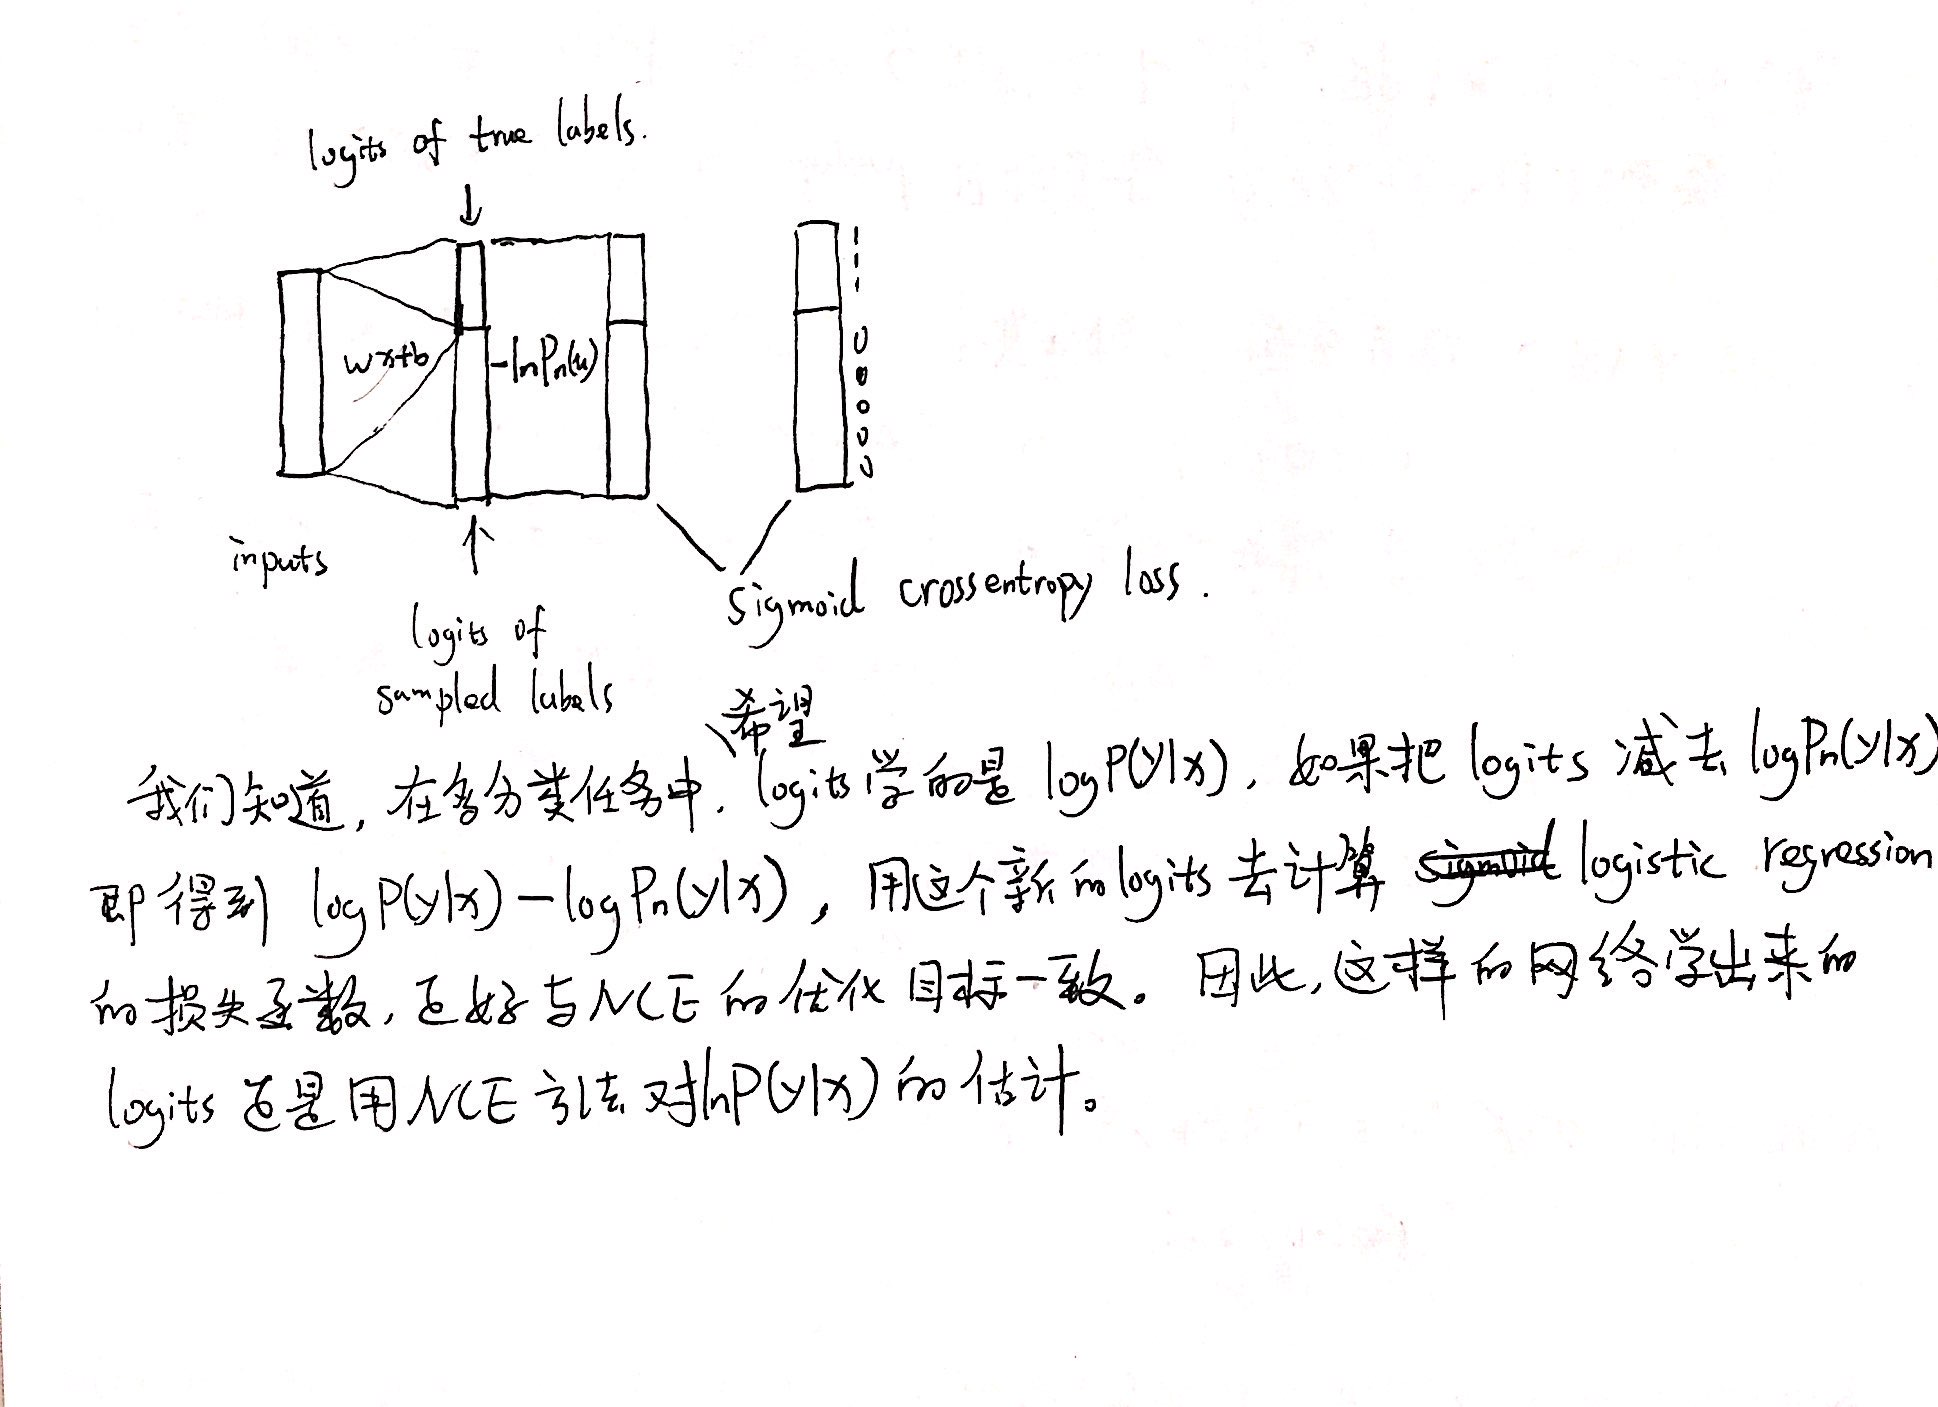 logits of true labels.
↓
wx+b
-lnPn(u)
1
1
1
0
0
0
0
0
inputs
↑
logits of
sampled labels
sigmoid crossentropy loss.
希望
我们知道,在多分类任务中,logits学的是 logP(y|x),如果把 logits 减去 logPn(y|x)
即得到 logP(y|x)-logPn(y|x),用这个新的logits去计算 logistic regression
的损失函数,正好与NCE的优化目标一致。因此,这样的网络学出来的
logits 正是用NCE方法对lnP(y|x)的估计。